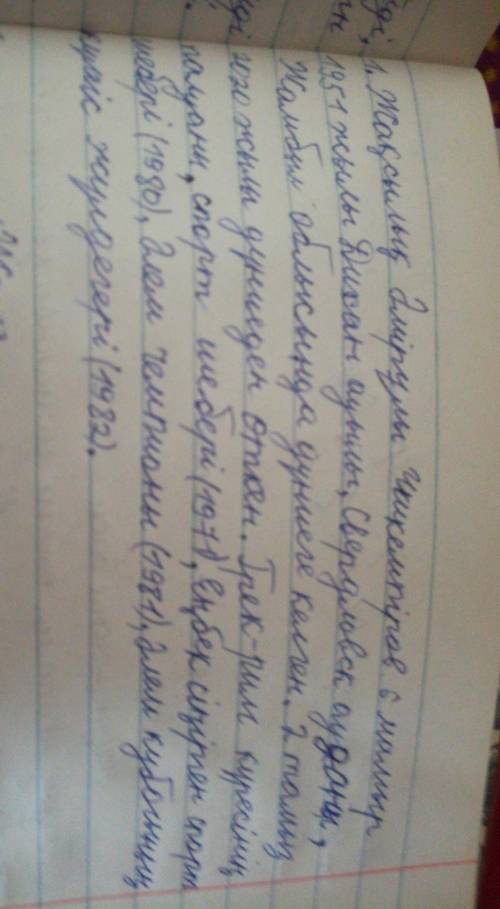 1. Жақсылық Әмірұлы Үшкемпіров 6 мамыр
1951 жылы Дихан ауылы, Свердловск ауданы,
Жамбыл облысында дүниеге келген. 2 тамыз
2020 жылы дүниеден өткен. Грек-рим күресінің
палуаны, спорт шебері (1971), Еңбек сіңірген спорт
шебері (1980), Әлем чемпионы (1981), Әлем кубогының
жүлдегері (1982).